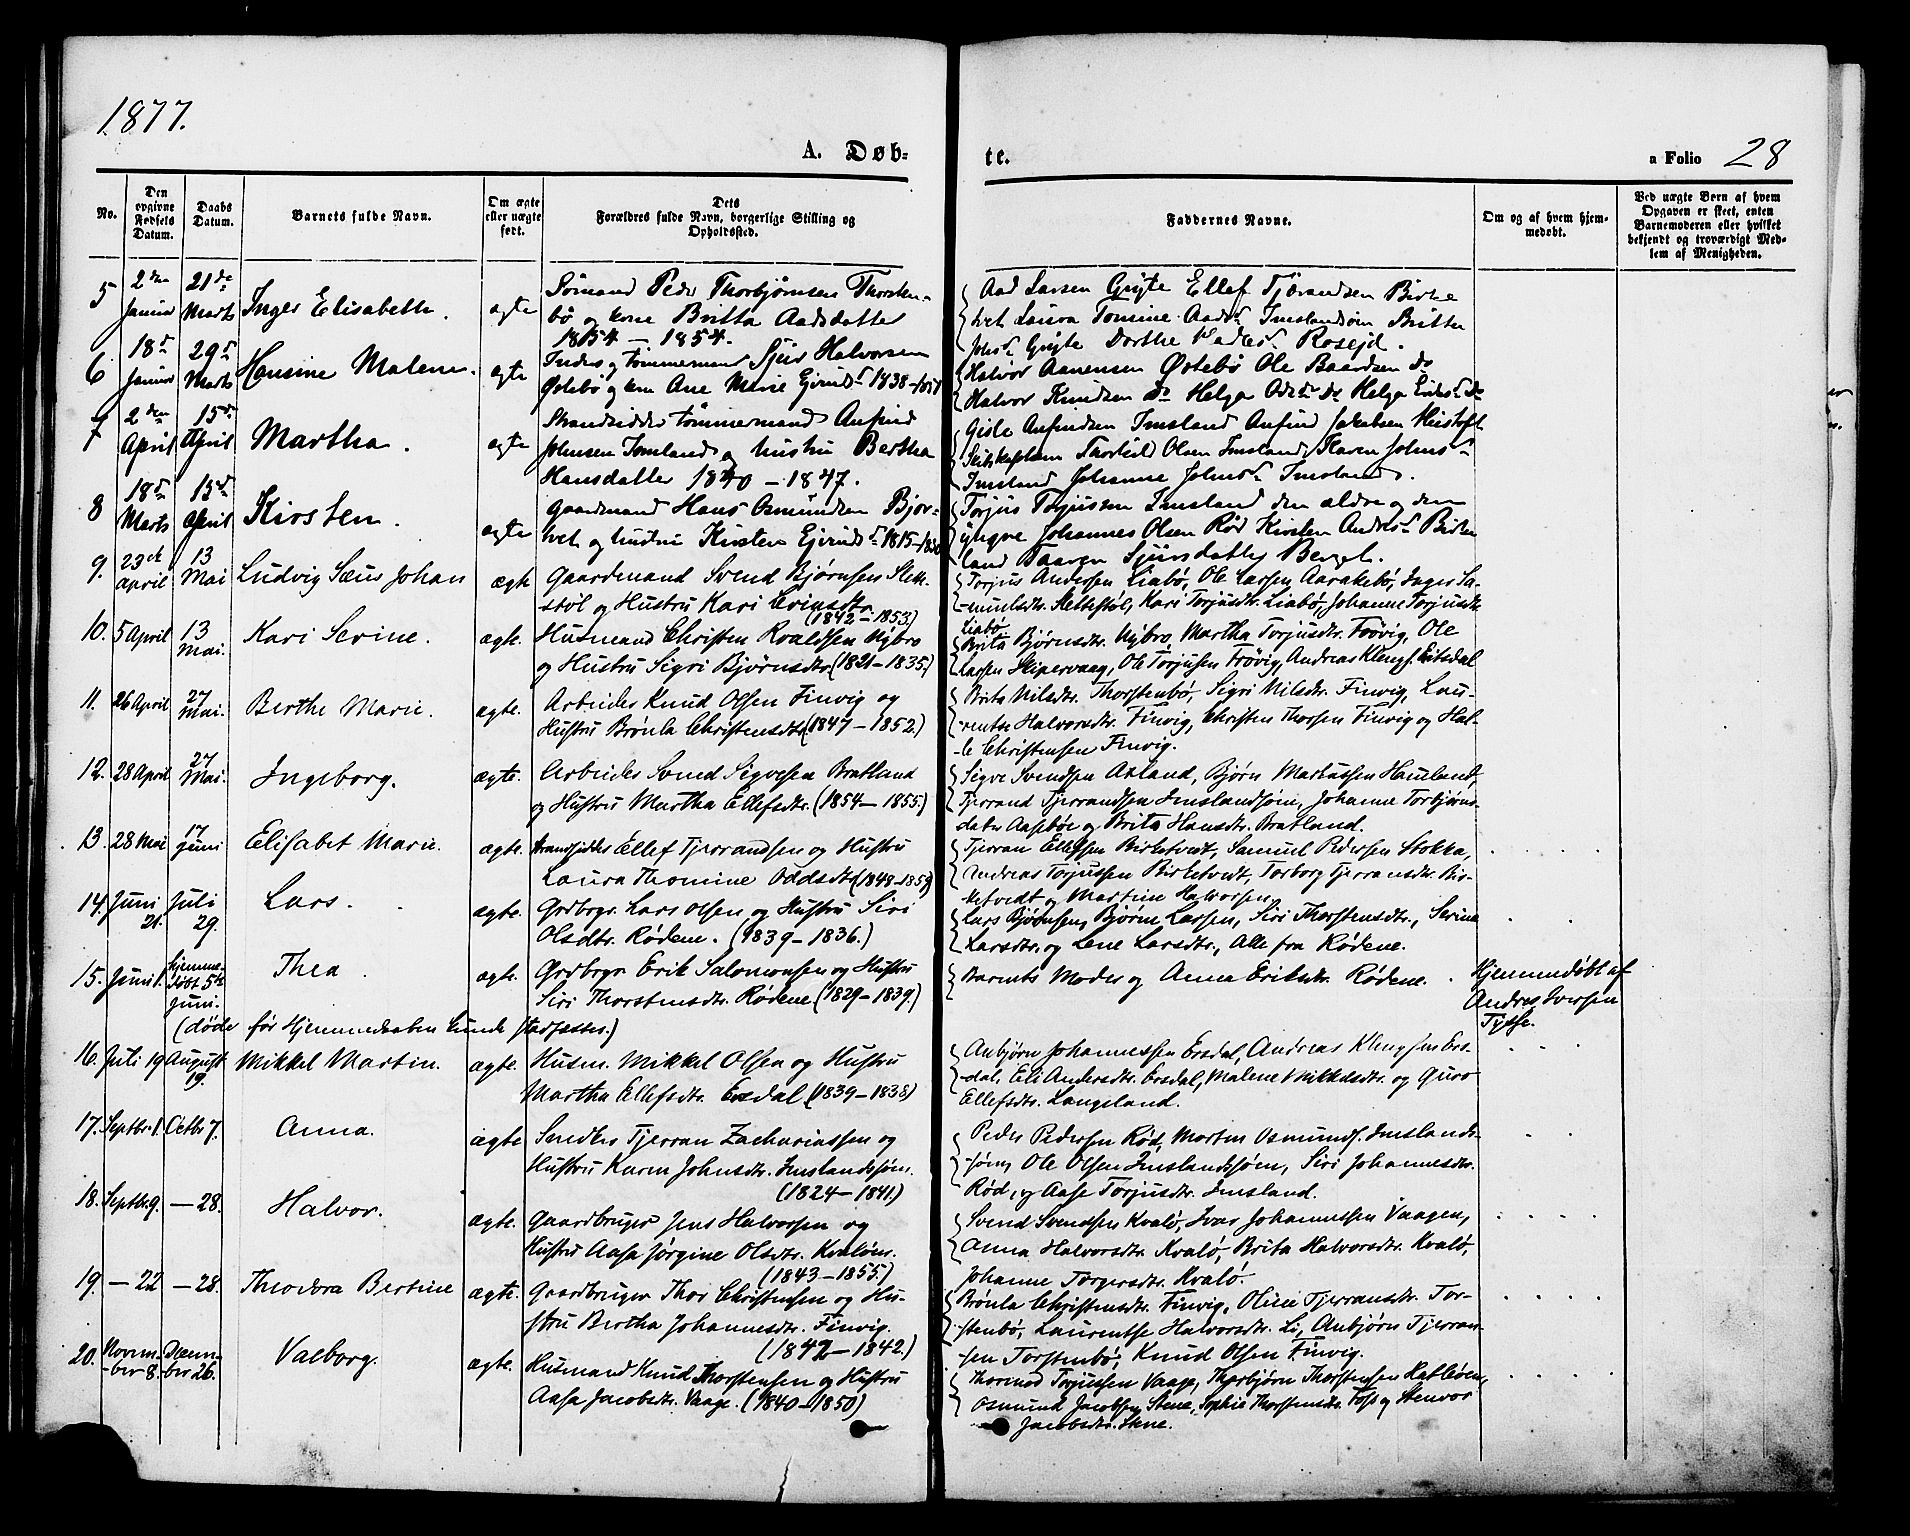 1877.
A. Døb-
te.
a Folio 28
No.
Den opgivne Fødsels Datum.
Daabs Datum.
Barnets fulde Navn.
Om ægte eller uægte født.
Dets Forældres fulde Navn, borgerlige Stilling og Opholdssted.
Faddernes Navne.
Om og af hvem hjemmedøbt.
Ved uægte Børn af hvem Opgaven er skeet, enten Barnemoderen eller hvilket bekjendt og troværdigt Medlem af Menigheden.
5 2den Januar 21de Marts Inger Elisabeth. ægte
Sømand Peder Thorbjørnsen Thorsten-
bø og kone Britta Aadsdatter
1854 – 1854.
Aad Larsen Ellef Tjærandsen Birke
tvet Laura Tomine Aads Imslandsøen Britta
Dorthe Roseid.
6. 18d Januar 29d Marts Hansine Malene. ægte
Inders og tømmermand Sjur Halvorsen
Østebø og kone Ane Marie Eivinds 1838 –
Halvor Aanensen Østebø Ole Baardsen do
Halvor Knudsen do Helga do Helga do
7 2den April 15d April Martha. ægte
Strandsidder tømmermand Anfind
Johnsen Imsland og hustru Bertha
Hansdatter 1840 – 1847.
Gisle Anfindsen Imsland Anfind Jakobsen
Thorkild Olsen Imsland Karen Johns
Imsland Johanne Johns Imsland.
8 18d Marts 15d April Kirsten. ægte
Gaardmand Hans Osmundsen Bjor-
tvet og hustru Kirsten Eivinds 1815 –
Torjus Torjussen Imsland den ældre og den
yngre Johannes Olsen Rød Kirsten Andres Birke
land Sjursdatter
9. 23de April 13 Mai Ludvig Sæus Johan ægte
Gaardmand Svend Bjørnsen Slette-
støl og Hustru Kari
(1842 – 1853.)
Torjus Andersen Liabø, Ole Larsen Aarakebø, Inger Sa-
-muelsdtr. Slettestøl, Kari Torjusdtr. Liabø, Johanne Torjusdtr.
Liabø
10. 5 April 13 Mai. Kari Serine. ægte.
Husmand Christen Roaldsen Nybro
og Hustru Sigri Bjørnsdtr. (1821 – 1835.)
Brita Bjørnsdtr. Nybro, Martha Torjusdtr. Frøvig, Ole
Larsen Skipervaag, Ole Torjusen Frøvig, Andreas Klengs. Ersdal
11. 26 April 27 Mai. Berthe Marie. ægte.
Arbeider Knud Olsen Finvig og
Hustru Brønla Christensdtr. (1847 – 1852.)
Brita Nilsdtr. Thorstenbø, Sigri Nilsdtr. Finvig, Lau-
-rentse Halvorsdtr. Finvig, Christen Thorsen Finvig og Hal-
-le Christensen Finvig.
12. 28 April 27 Mai. Ingeborg. ægte.
Arbeider Svend Sigvesen Bratland
og Hustru Martha Ellefsdtr. (1854 – 1855.)
Sigve Svendsen Axland, Bjørn Martussen Hauland,
Tjerrand Tjerrandsen Imslandsøen, Johanne Torbjørns-
dater Aasebøe og Brita Hansdtr. Bratland.
13. 28 Mai 17 Juni Elisabet Marie. ægte.
Strandsidder Ellef Tjerrandsen og Hustru
Laura Thomine Oddsdtr. (1848 – 1859)
Tjerran Ellefsen Birketvedt, Samuel Pedersen Stokka,
Andreas Torjussen Birketvedt, Torborg Tjerransdtr. Bir-
ketvedt og Martine Halvorsen.
14. Juni 21. Juli 29. Lars. ægte.
Grdbrgr. Lars Olsen og Hustru Siri
Olsdtr. Rødene. (1839 – 1836.)
Lars Bjørnsen, Bjørne Larsen, Siri Thorstensdtr., Serine
Larsdtr. og Lene Larsdtr., Alle fra Rødene.
15. Juni 1. hjemme-døbt 5te Juni. Thea. ægte.
(døde før Hjemmedaaben kunde stadfæstes.)
Grdbrgr. Erik Salomonsen og Hustru
Siri Thorstensdtr. Rødene (1829 – 1839.)
Barnets Moder og Anna Eriksdtr. Rødene.
Hjemmedøbt af
Andres Iversen
Tysse.
16. Juli 19 August 19. Mikkel Martin. ægte.
Husm. Mikkel Olsen og Hustru
Martha Ellefsdtr. Ersdal (1839 – 1838)
Anbjørn Johannessen Ersdal, Andreas Klengsen Ers-
-dal, Eli Andersdtr. Ersdal, Malene Mikkelsdtr. og Guro
Ellefsdtr. Langeland.
17. Septbr. 1. Octbr 7. Anna. ægte
Snedker Tjerran Zachariassen og
Hustru Karen Johnsdtr. Imslandsøen.
(1824 – 1841.)
Peder Pedersen Rød, Morten Osmunds. Imslands-
-øen, Ole Olsen Imslandsøen, Siri Johannesdtr.
Rød, og Aase Torjusdtr. Imsland.
18. Septbr. 9. – 28. Halvor. ægte.
Gaardbruger Jens Halvorsen og
Hustru Aasa Jørgine Olsdtr. Kvaløen.
(1843 – 1855.)
Svend Svendsen Kvalø, Ivar Johannessen Vaagen,
Anna Halvorsdtr. Kvalø, Brita Halvorsdtr. Kvalø,
Johanne Torgersdtr. Kvalø.
19. – 22 – 28. Theodora Bertine ægte.
Gaardbruger Thor Christensen og Hu-
stru Bertha Johannesdtr. Finvig.
(1842 – 1842.)
Brønla Christensdtr. Finvig, Oline Tjerransdtr. Tor-
-stenbø, Laurentse Halvorsdtr. Li, Anbjørn Tjerran-
-sen Torstenbø, Knud Olsen Finvig.
20. Novem-ber 8. Decem-ber 26. Valborg. ægte.
Husmand Knud Thorstensen og Hustru
Aasa Jacobsdtr. Vaage. (1840 – 1850)
Thormod Torjussen Vaage, Thorbjørn Thorstensen
Osmund Jacobsen Stene, Sophie Thorstensdtr. Foss og Stenvor
Jacobsdtr. Stene.